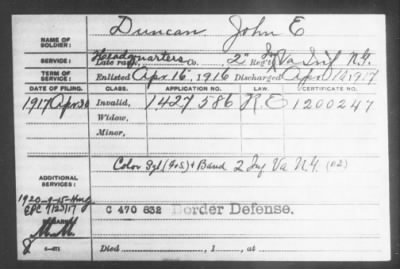 NAME OF SOLDIER: Duncan John E
SERVICE: Headquarters Late rank, Co. 2" Reg't Inf Va Inf N.G.
TERM OF SERVICE: Enlisted Apr. 16", 1916 Discharged Apr 1917
DATE OF FILING. CLASS. APPLICATION NO. LAW. CERTIFICATE NO.
1917 Apr 30 Invalid, 1427586 1200247
Widow,
Minor,
ADDITIONAL SERVICES: Color Sgt (Band 2 Inf Va N.G.
C 470 632 Border Defense.
REMARKS:
Died , 1 , at